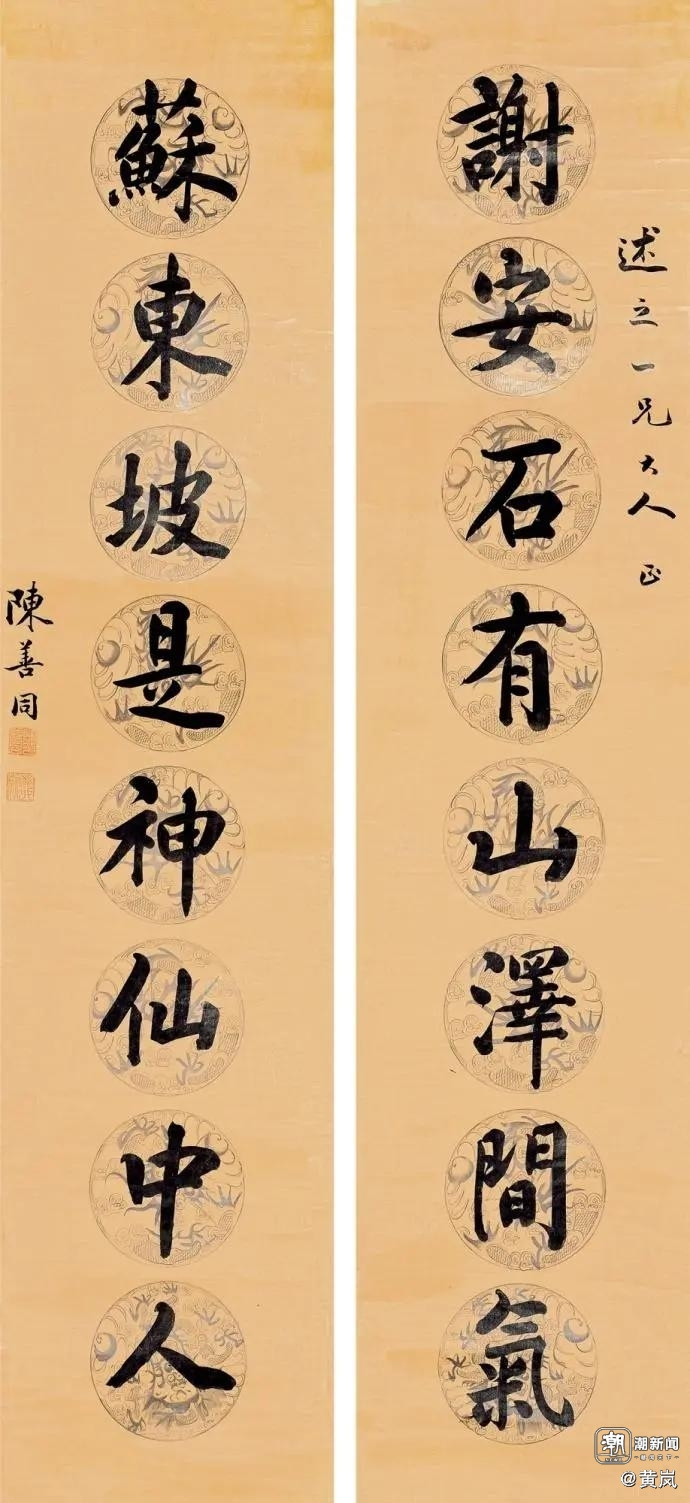 述之一兄大人 正
謝安石有山澤間氣
蘇東坡是神仙中人
陳善同
潮新闻
@黄岚